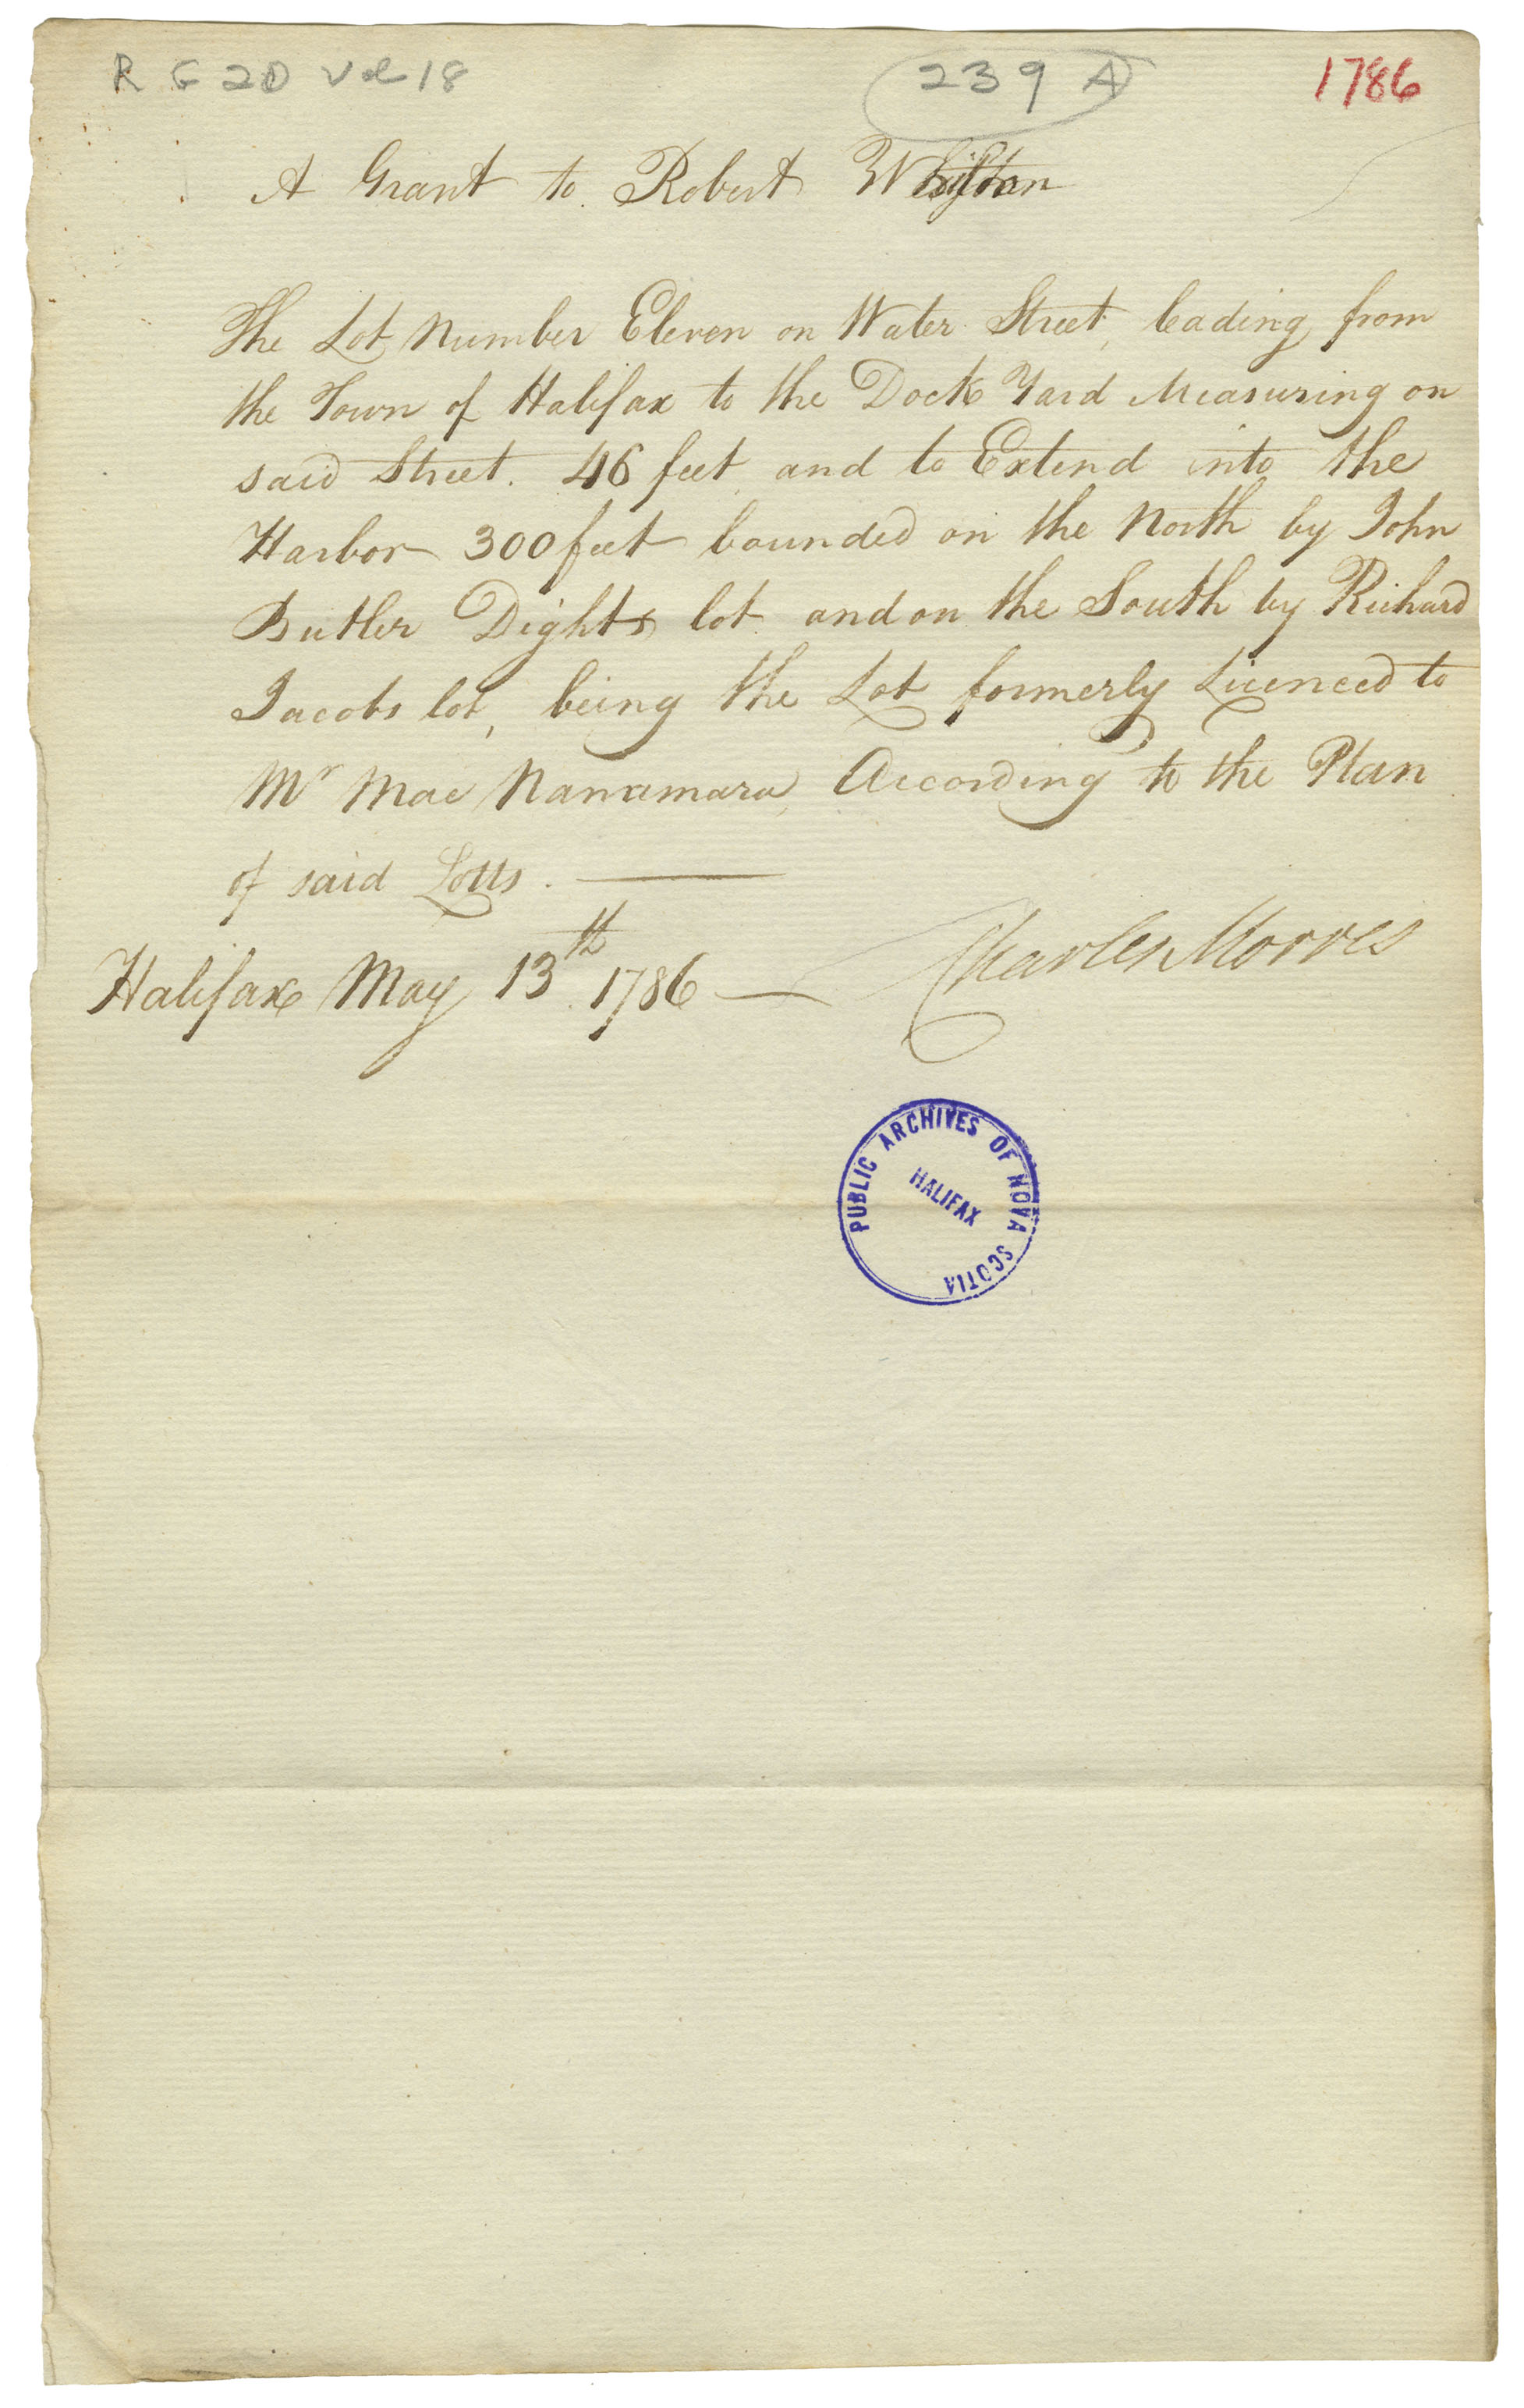 R G 20 Vol 18
239 A
1786
A Grant to Robert
The Lot Number Eleven on Water Street, leading from
the Town of Halifax to the Dock Yard Measuring on
said Street. 46 feet and to Extend into the
Harbor 300 feet bounded on the North by John
Butler Dights lot and on the South by Richard
Jacobs lot, being the Lot formerly Licenced to
Mr Mac Nanamara, According to the Plan
of said Lotts. —
Halifax May 13th 1786 — Charles Morris
PUBLIC ARCHIVES OF NOVA SCOTIA
HALIFAX